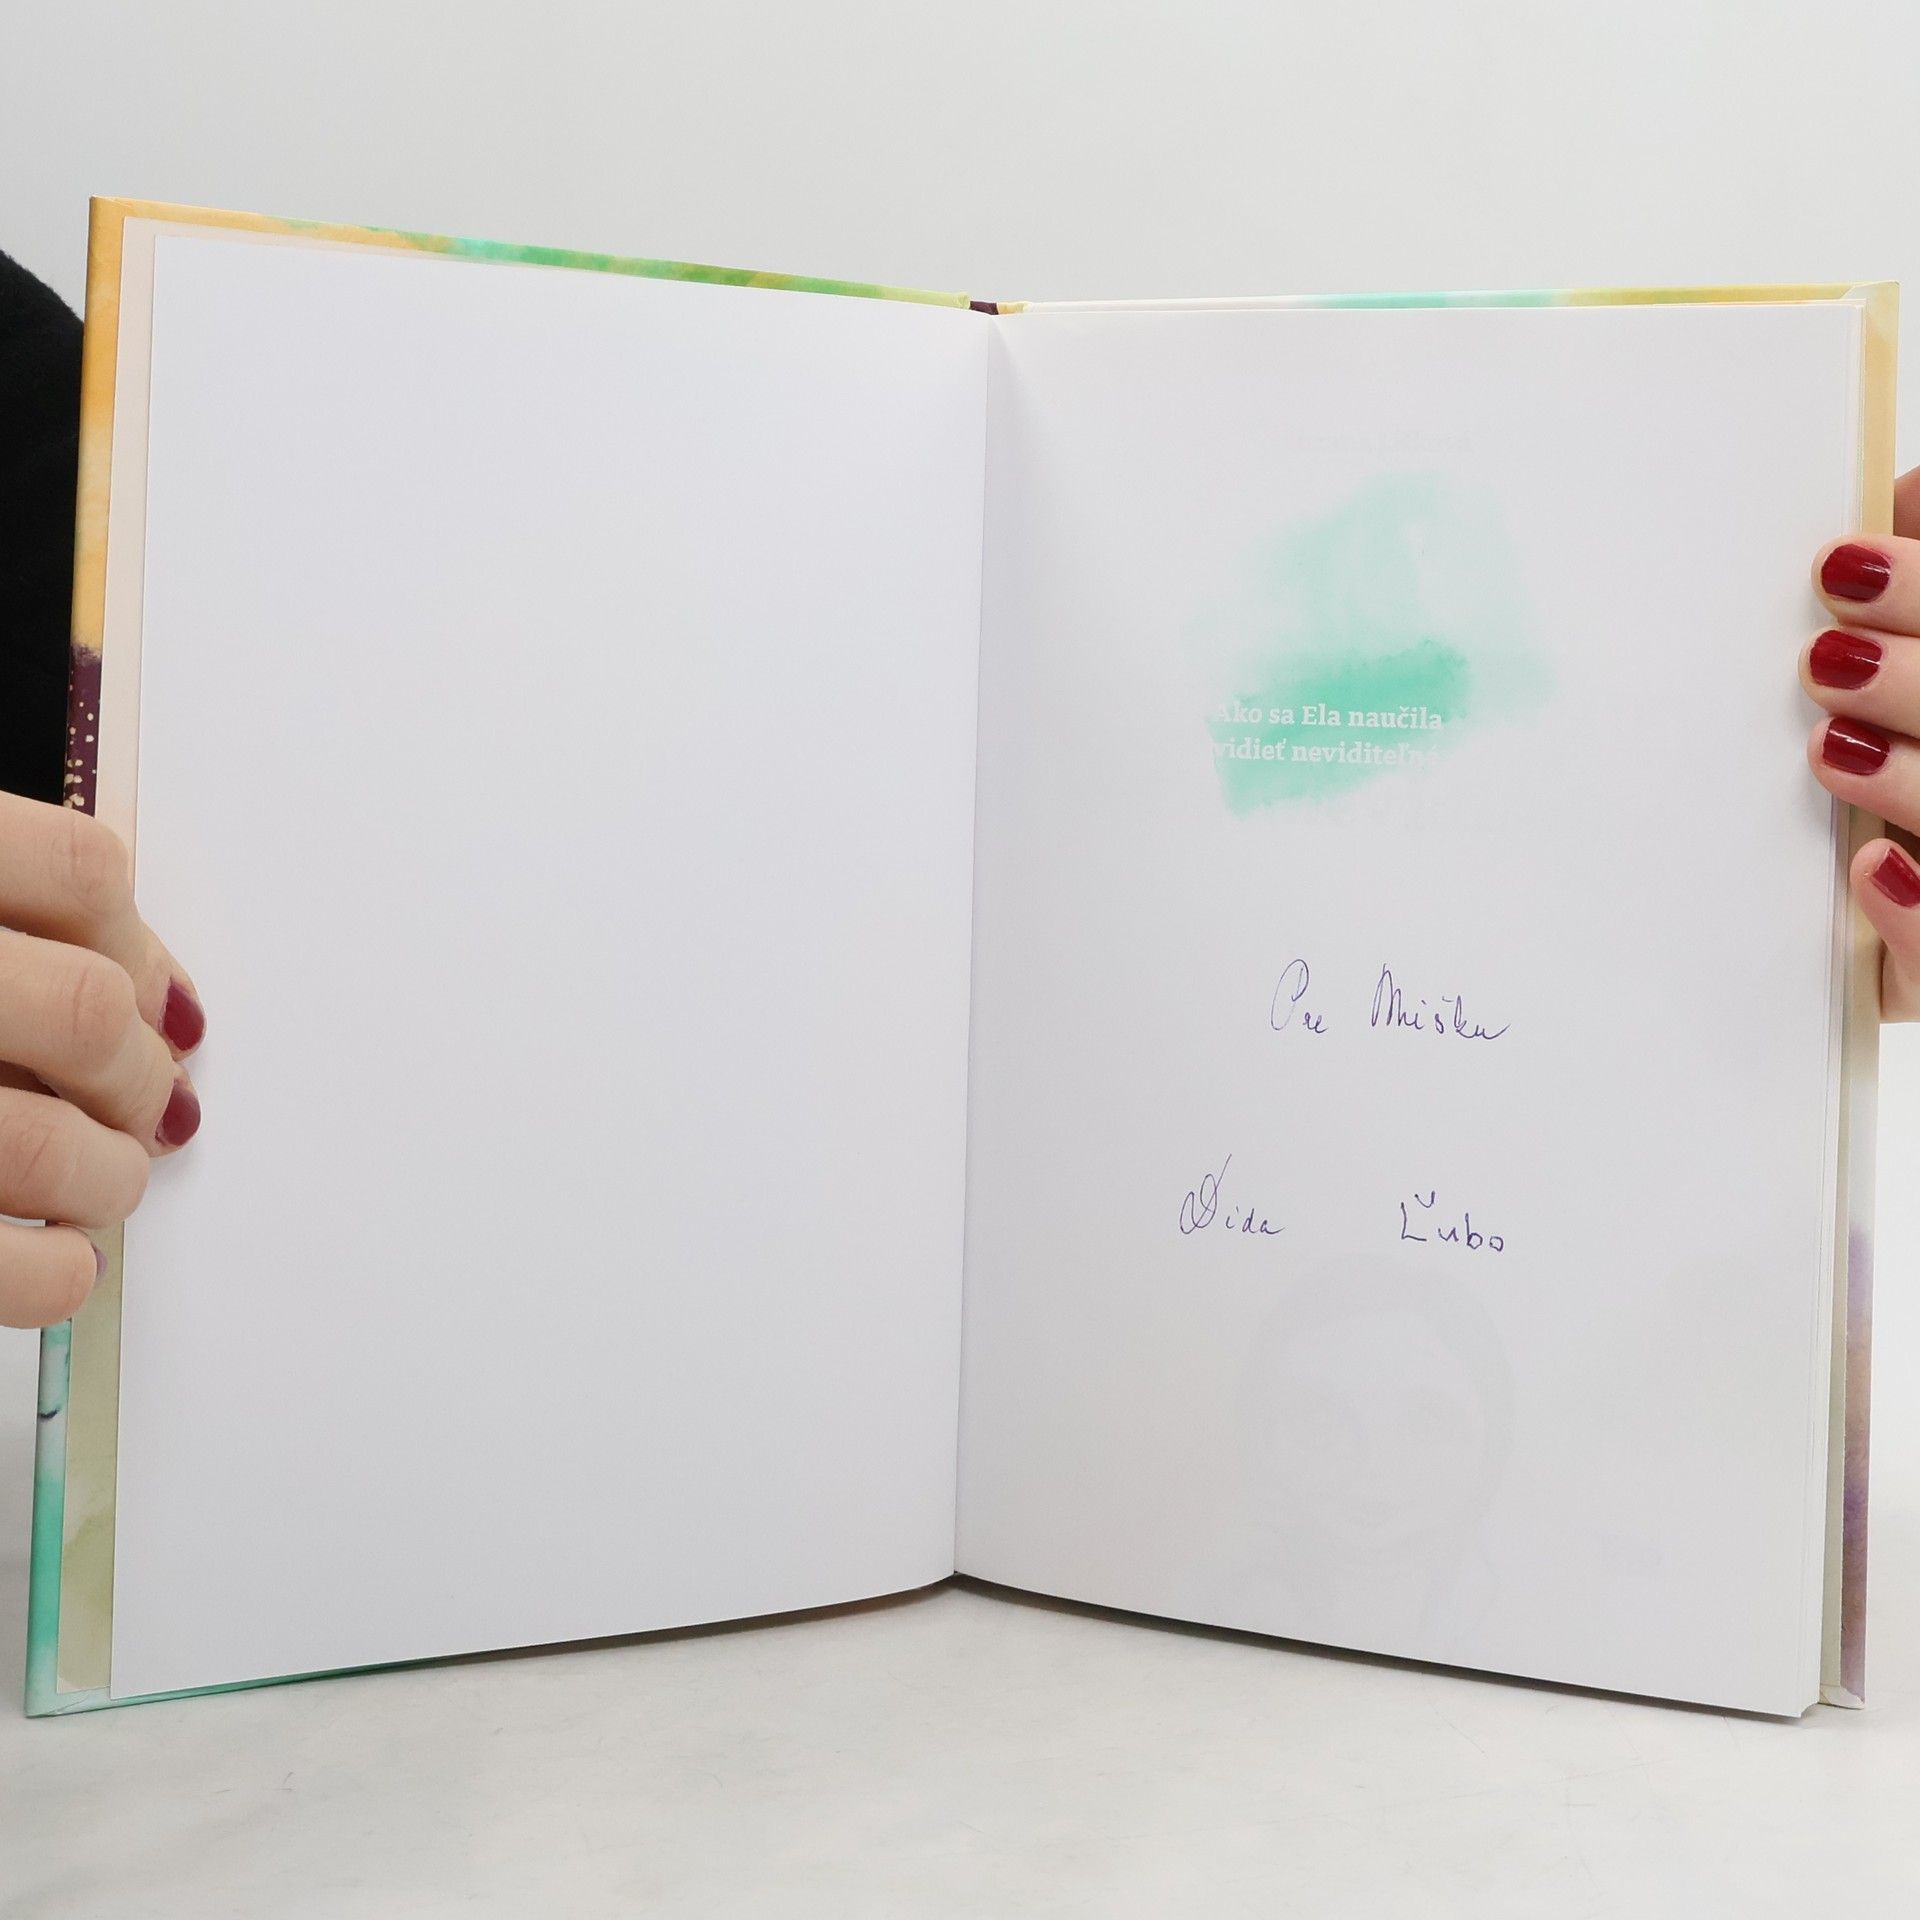 Ako sa Ela naučila
vidieť neviditeľné
Pre Mišku
Dida Ľubo